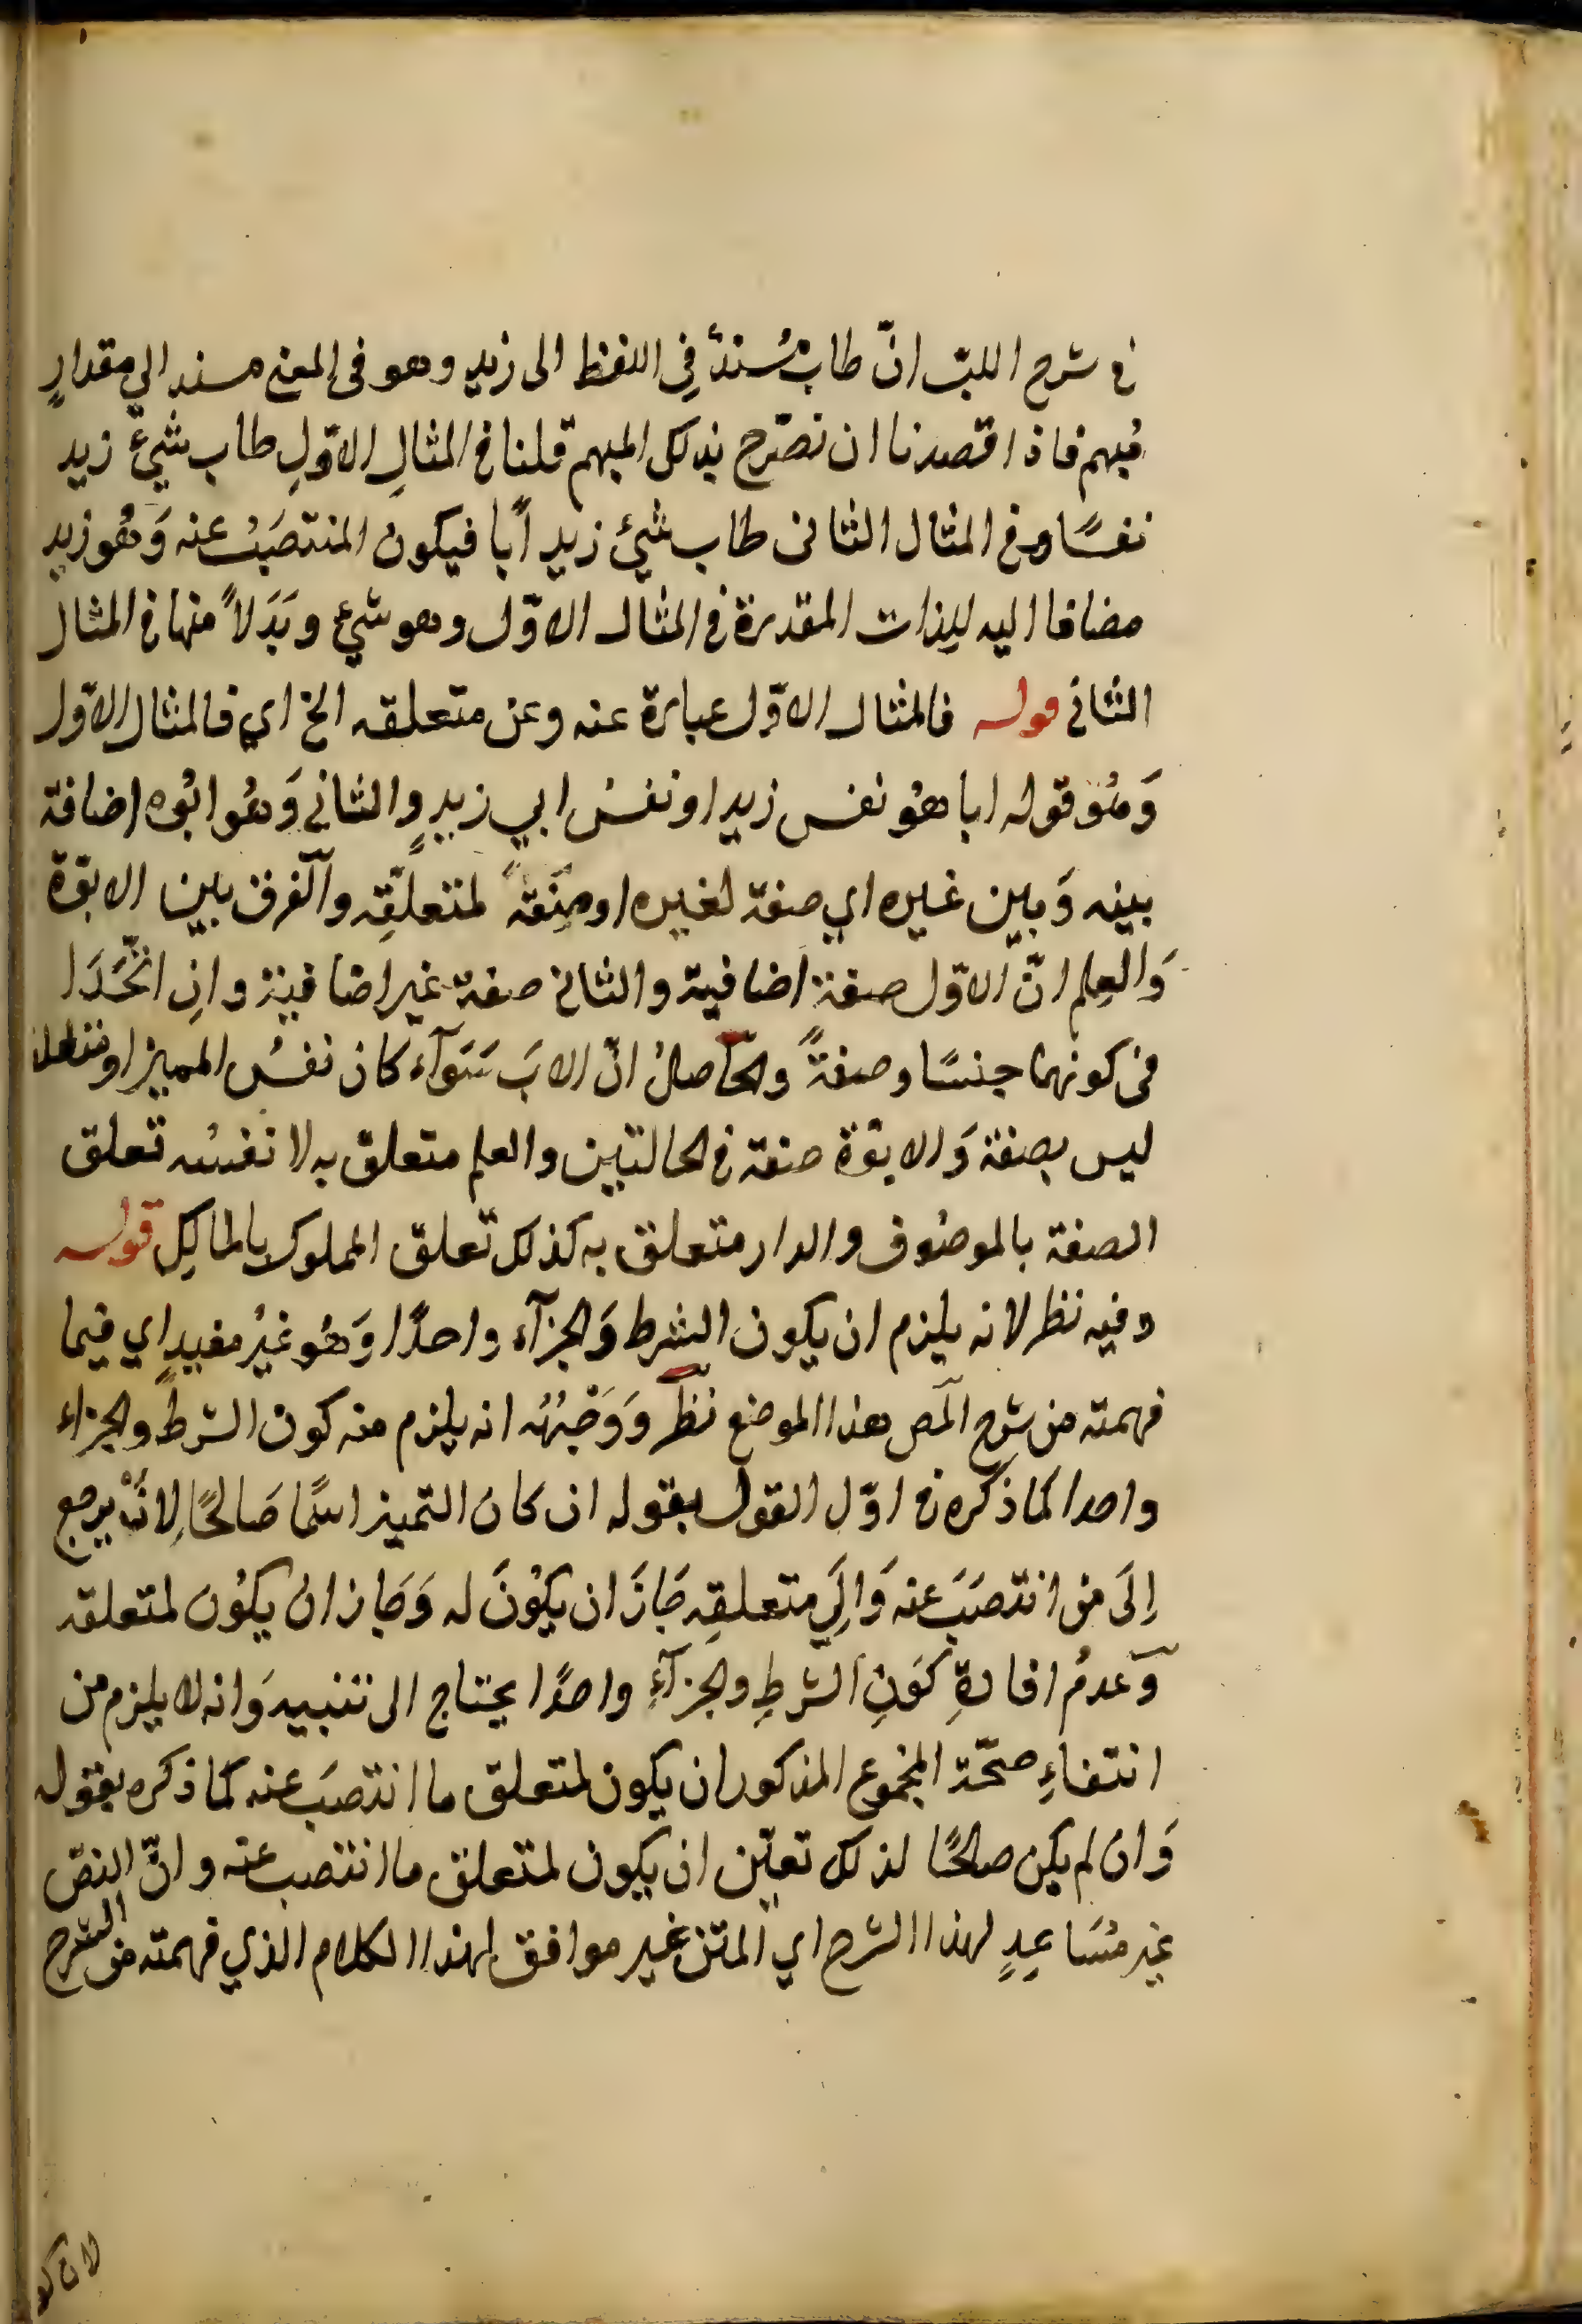 في شرح اللبّ انّ طاب مُسندٌ في اللفظ الى زيد وهو في المعنى مسند الى مقدارٍ
مُبهم فاذا قصدنا ان نصرّح بذلك المبهم قلنا في المثالِ الاوّلِ طاب شيءٌ زيد
نفسًا وفي المثال الثاني طاب شيءٌ زيد أبًا فيكون المنتصَبُ عنه وَهُو زيد
مضافا اليه للِذات المقدرة في المثال الاوّل وهو شيء وبَدَلاً منها في المثال
الثاني قوله فالمثال الاوّل عبارة عنه وعن متعلقه الخ اي فالمثال الاوّل
وَهُو قوله ابا هُو نفس زيد او نفسُ ابي زيدٍ والثاني وَهُو ابُوه اضافة
بينه وَبين غيره اي صفة لغيره او صِفةً لمتعلّقِه والفرق بين الابوّة
وَالعِلم انّ الاوّل صفة اضافية والثاني صفة غير اضافية وانِ اتّحَدَا
في كونهما جنسًا وصفةً والحاصلُ انّ الابَ سَوَآء كان نفسُ المميز او متعلقه
ليس بصفة وَالابوّة صفة في الحالتين والعلم متعلق به لا نفسُه تعلق
الصفة بالموصُوف والدار متعلق به كذلك تعلق المملوك بالمالكِ قوله
وفيه نظر لانه يلزم ان يكون الشرط وَالجزآء واحدًا وَهُو غيرُ مفيدٍ اي فيما
فهمته من شرح المص هذا الموضع نظر وَوَجْهُه انه يلزم منه كون الشرط والجزاء
واحدا كما ذكره في اوّل القول بقوله ان كان التميز اسمًا صَالحًا لِانْ يرجع
اِلَى من انتصَبَ عنه وَالِيَ متعلقِه جَازَ ان يكُونَ له وَجَاز ان يكُون لمتعلقه
وَعدمُ افادةِ كَونِ الشرطِ والجزآءِ واحدًا يحتاج الى تنبيه وَانه لا يلزم من
انتفاءِ صحّة المجموع المذكور ان يكون لمتعلق ما انتصَبَ عنه كما ذكره بقوله
وَان لم يكن صالحًا لذلك تعيّن ان يكون لمتعلق ما انتصب عنه وانّ النصّ
غير مُسَاعِدٍ لهذا الشرح اي المتن غير موافق لهذا الكلام الذي فهمته من الشرح
لان كو